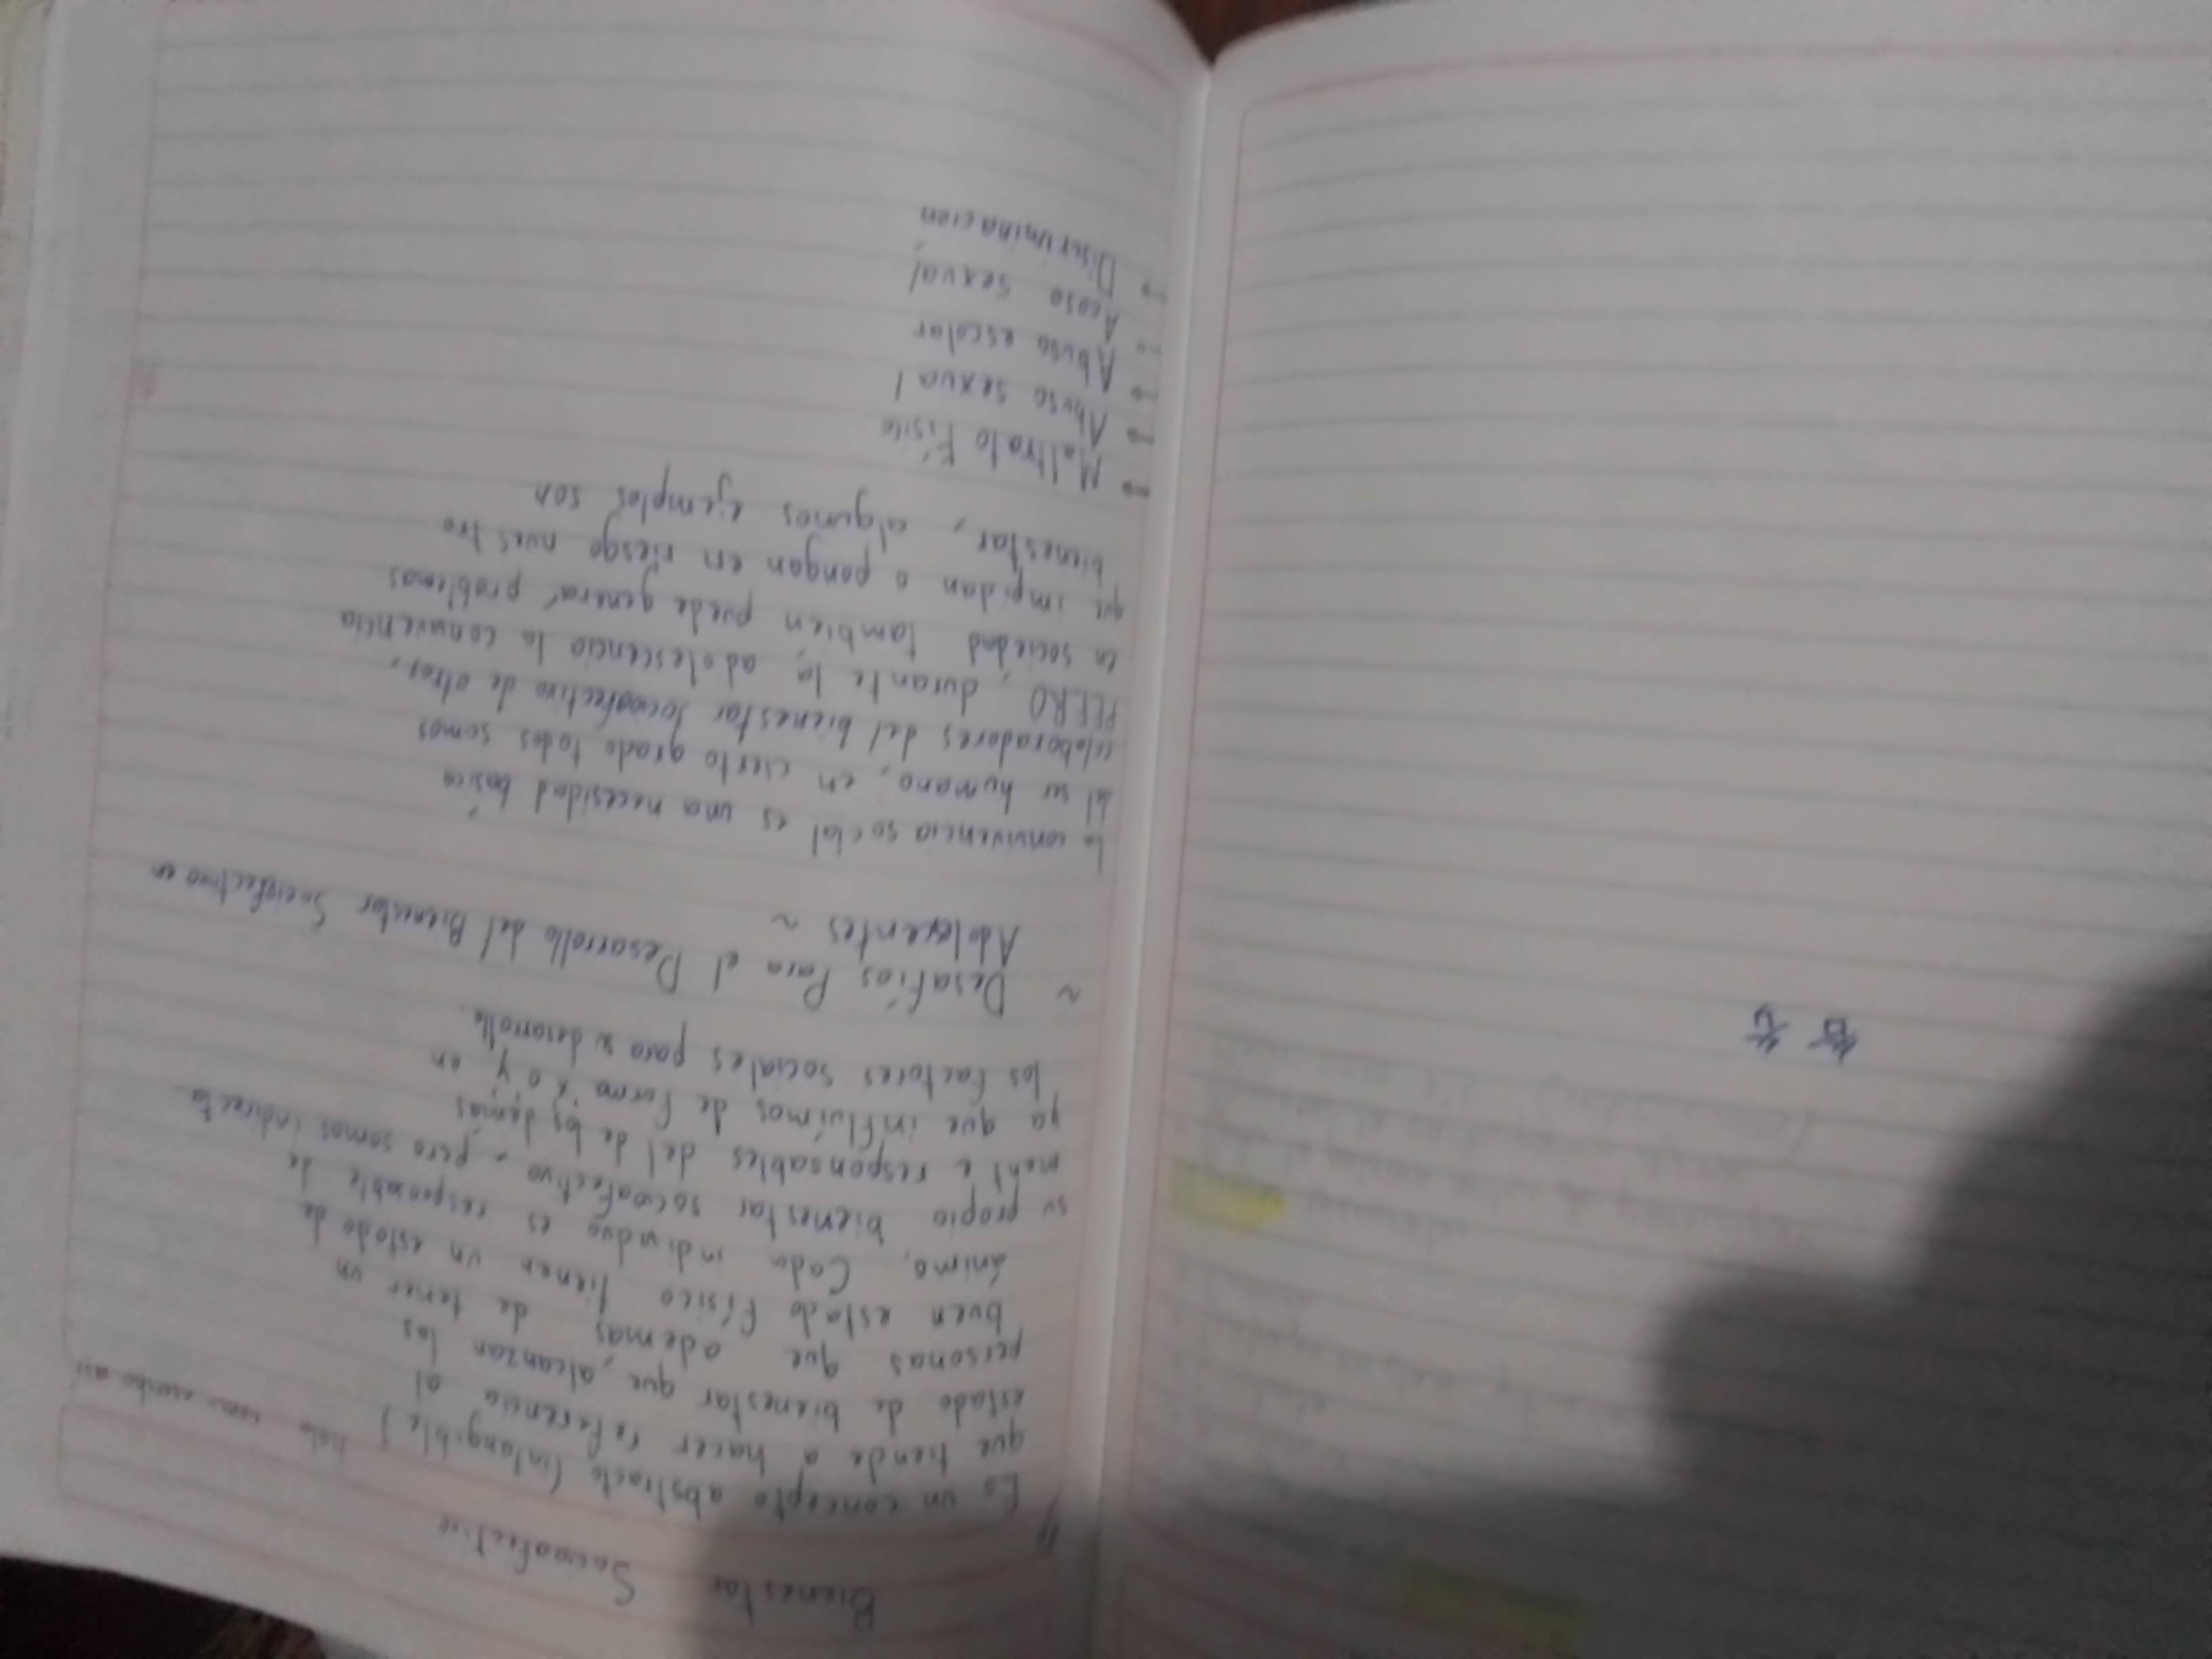 Bienestar Socioafectivo
hola como escribo asi
Es un concepto abstracto (intangible)
que tiende a hacer referencia al
estado de bienestar que, alcanzan las
personas que ademas de tener un
buen estado Físico tienen un estado de
ánimo. Cada individuo es responsable de
su propio bienestar socioafectivo, pero somos indirecta
mente responsables del de los demás
ya que influímos de forma X o Y en
los factores sociales para su desarrollo.
~ Desafíos Para el Desarrollo del Bienestar Socioafectivo en
Adolecentes ~
La convivencia social es una necesidad basica
del ser humano, en cierto grado todos somos
colaboradores del bienestar socioafectivo de otros,
PEERO, durante la adolescencia la convivencia
en sociedad tambien puede generar problemas
que impidan o pongan en riesgo nuestro
bienestar, algunos ejemplos son
→ Maltrato Físico
→ Abuso sexual
→ Abuso escolar
→ Acoso sexual
→ Discriminación